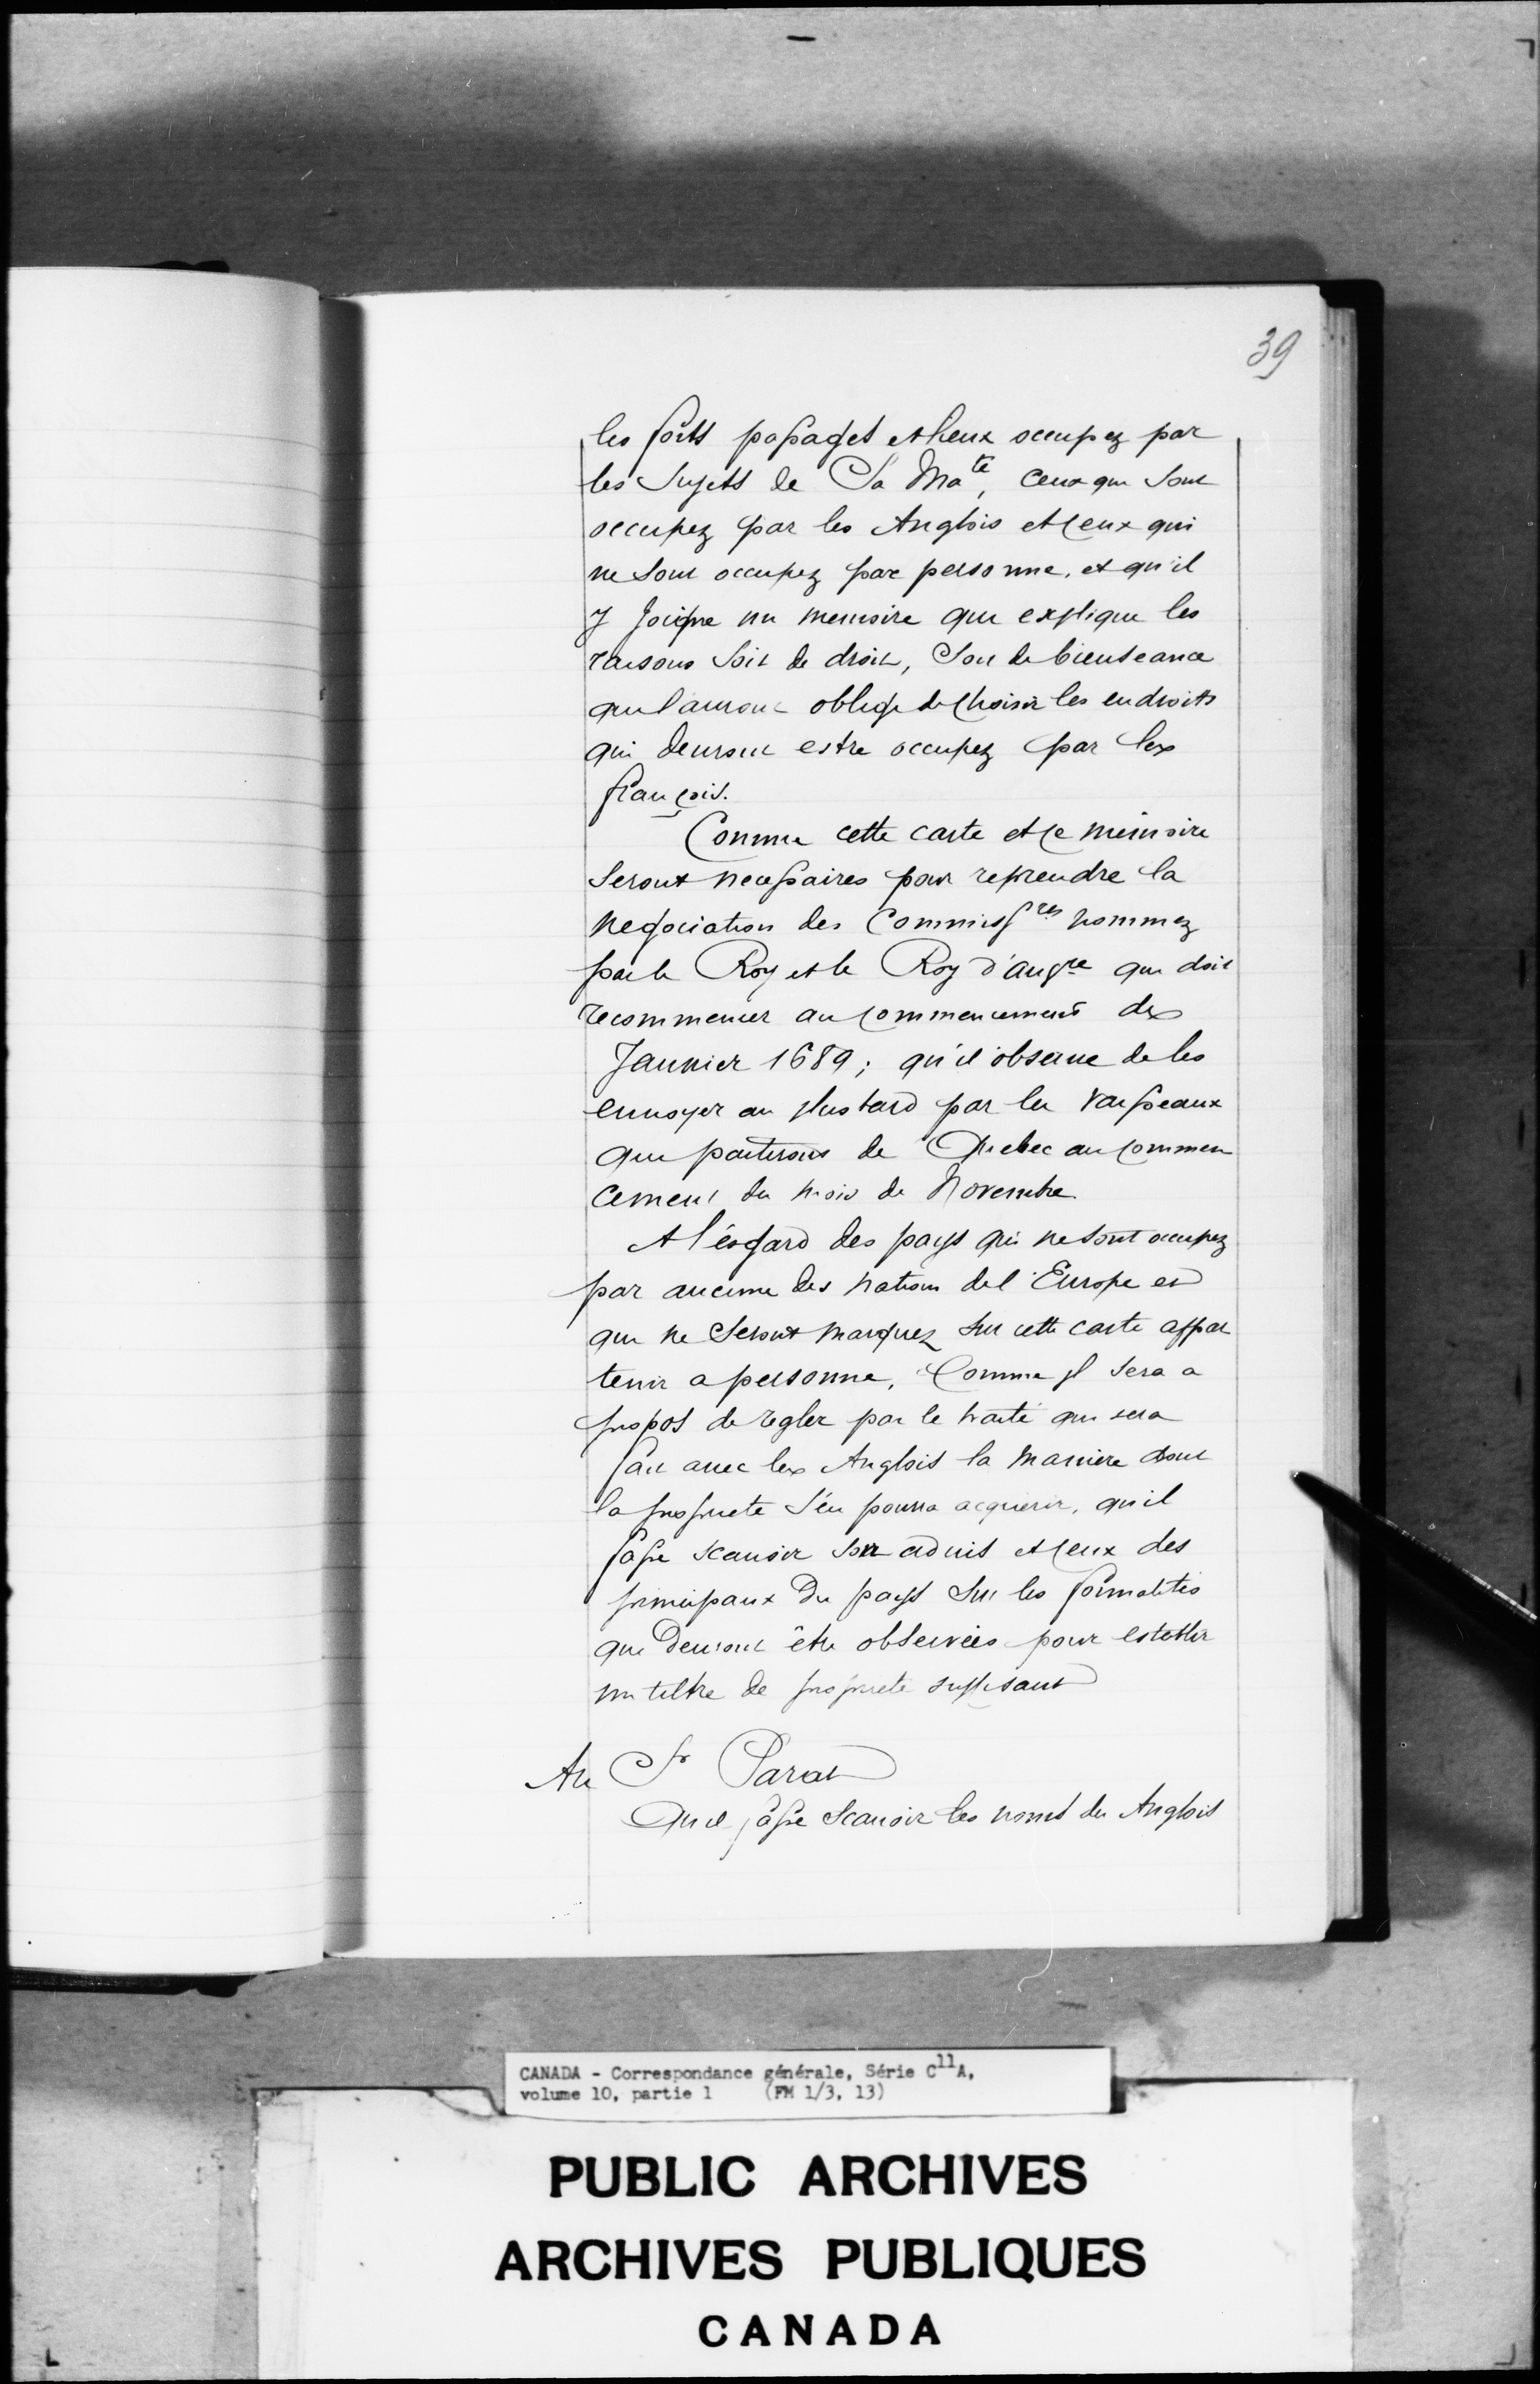 39
les forts passages et lieux occupez par
les Sujets de Sa Ma^té, ceux qui sont
occupez par les Anglois et ceux qui
ne sont occupez par personne, et qu'il
y joigne un memoire qui explique les
raisons soit de droit, soit de bienseance
qui l'auront obligé de choisir les endroits
qui devront estre occupez par les
françois.
Comme cette carte et ce mémoire
seront necessaires pour reprendre la
negociation des Commiss^res nommez
par le Roy et le Roy d'Ang^re qui doit
recommencer au commencement de
Janvier 1689; qu'il observe de les
envoyer au plus tard par les vaisseaux
qui partirons de Quebec au commen
cement du mois de Novembre
A l'égard des pays qui ne sont occupez
par aucune des nations de l'Europe et
qui ne seront marquez sur cette carte appar
tenir a personne, Comme il sera a
propos de regler par le traité qui sera
fait avec les Anglois la maniere dont
la propriete s'en pourra acquerir, qu'il
fasse scavoir son advis et ceux des
principaux du pays sur les formalités
qui devront être observées pour establir
un tiltre de propriete suffisant
Au Sr Parat
Qu'il fasse scavoir les noms des Anglois
CANADA - Correspondance générale, Série C11A,
volume 10, partie 1 (FM 1/3, 13)
PUBLIC ARCHIVES
ARCHIVES PUBLIQUES
CANADA